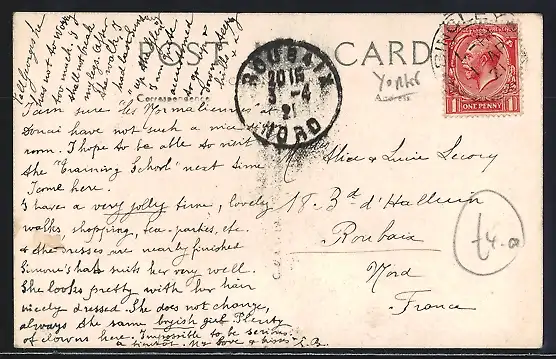 POST CARD
Correspondence
Address
Yorks
ROUBAIX
2015
3-4
21
NORD
ONE PENNY
Tell
has not to worry
too much. I
shall not break
my legs after
the walk I
had last time
I am quite
accustomed
to going up &
down
hills
I am sure "les Normaliennes" at
Douai have not such a nice
room. I hope to be able to visit
the "Training School" next time
I come here.
I have a very jolly time, lovely
walks, shopping, tea-parties, etc.
& the dresses are nearly finished
Simone's hat suits her very well.
She looks pretty with her hair
nicely dressed. She does not change,
always the same boyish girl. Plenty
of clowns here. Impossible to be serious.
à bientôt. My love & kisses
Alice & Lucie
18. Bd d'Halluin
Roubaix
Nord
France
£4-00